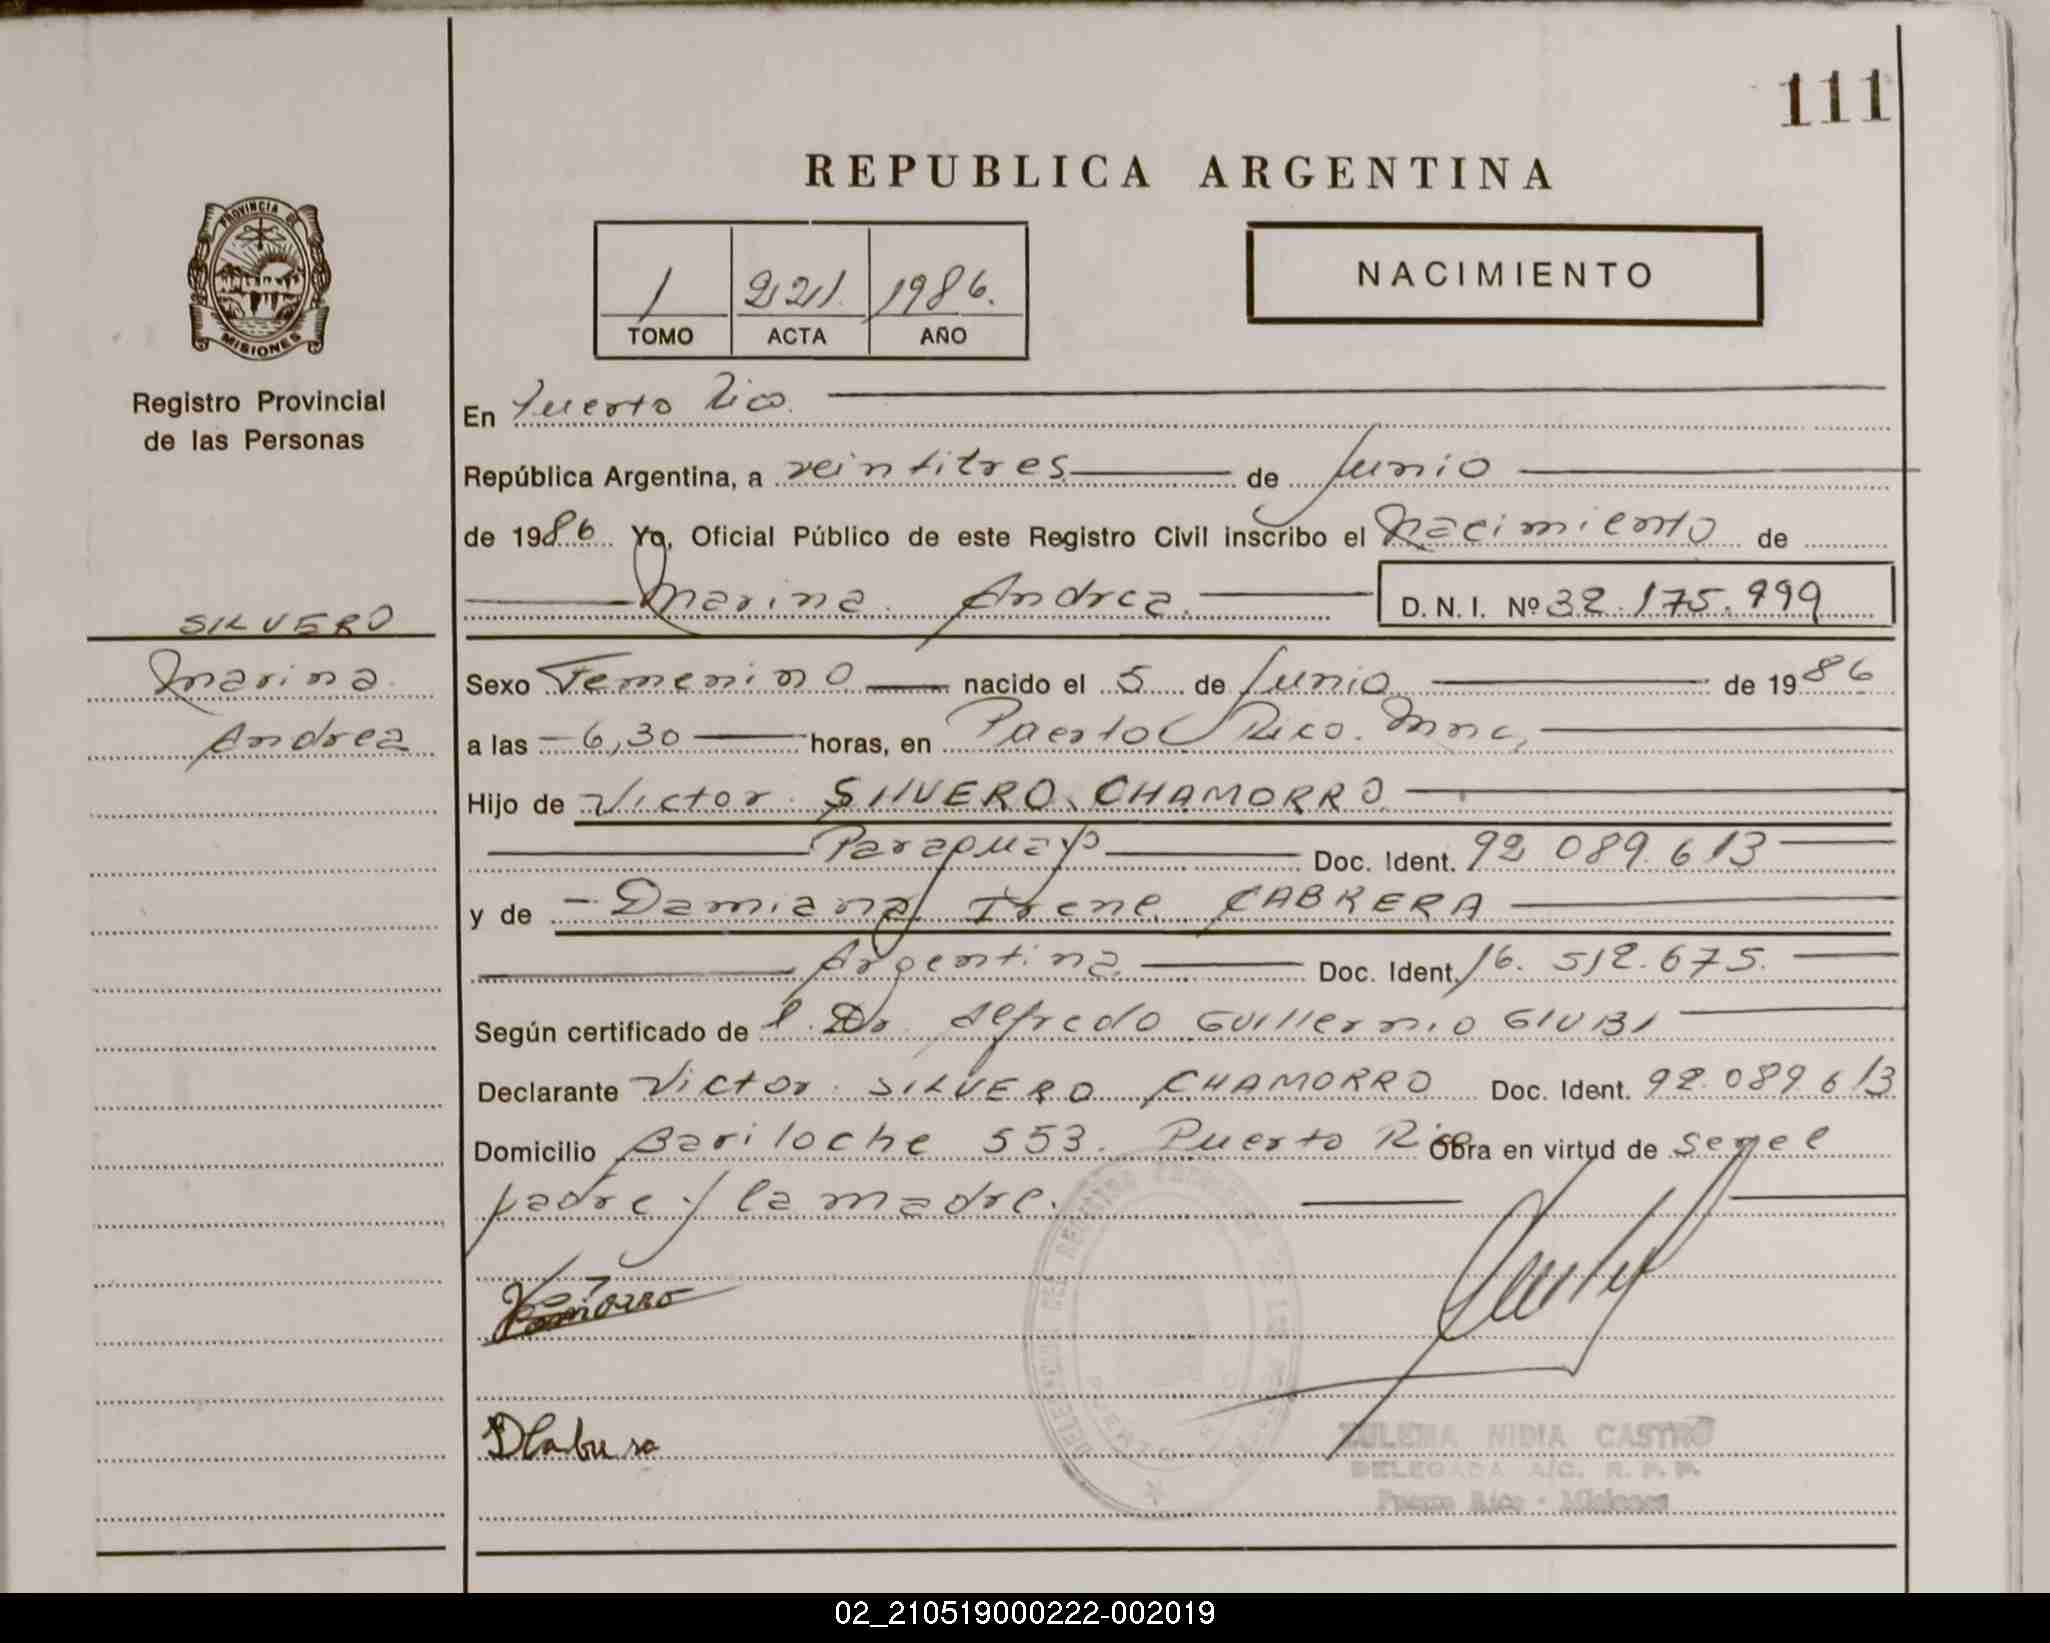 111
REPUBLICA ARGENTINA
PROVINCIA DE
MISIONES
1 221. 1986.
TOMO ACTA AÑO
NACIMIENTO
Registro Provincial
de las Personas
En Puerto Rico.
República Argentina, a veintitres de Junio
de 1986. Yo, Oficial Público de este Registro Civil inscribo el Nacimiento de
Marina Andrea. D. N. I. Nº 32.175.999
SILVERO
Marina
Andrea
Sexo Femenino nacido el 5 de Junio de 1986
a las 6,30 horas, en Puerto Rico. Mnes.
Hijo de Victor SILVERO CHAMORRO
Paraguayo Doc. Ident. 92 089.613
y de Damiana Irene CABRERA
Argentina Doc. Ident. 16.512.675.
Según certificado de l. Dr. Alfredo Guillermo GIUBI
Declarante Victor SILVERO CHAMORRO Doc. Ident. 92.089.613
Domicilio Bariloche 553. Puerto Rico Obra en virtud de ser el
padre y la madre.
ZULEMA NIDIA CASTRO
DELEGADA A/C. R. P. P.
Puerto Rico - Misiones
02_210519000222-002019